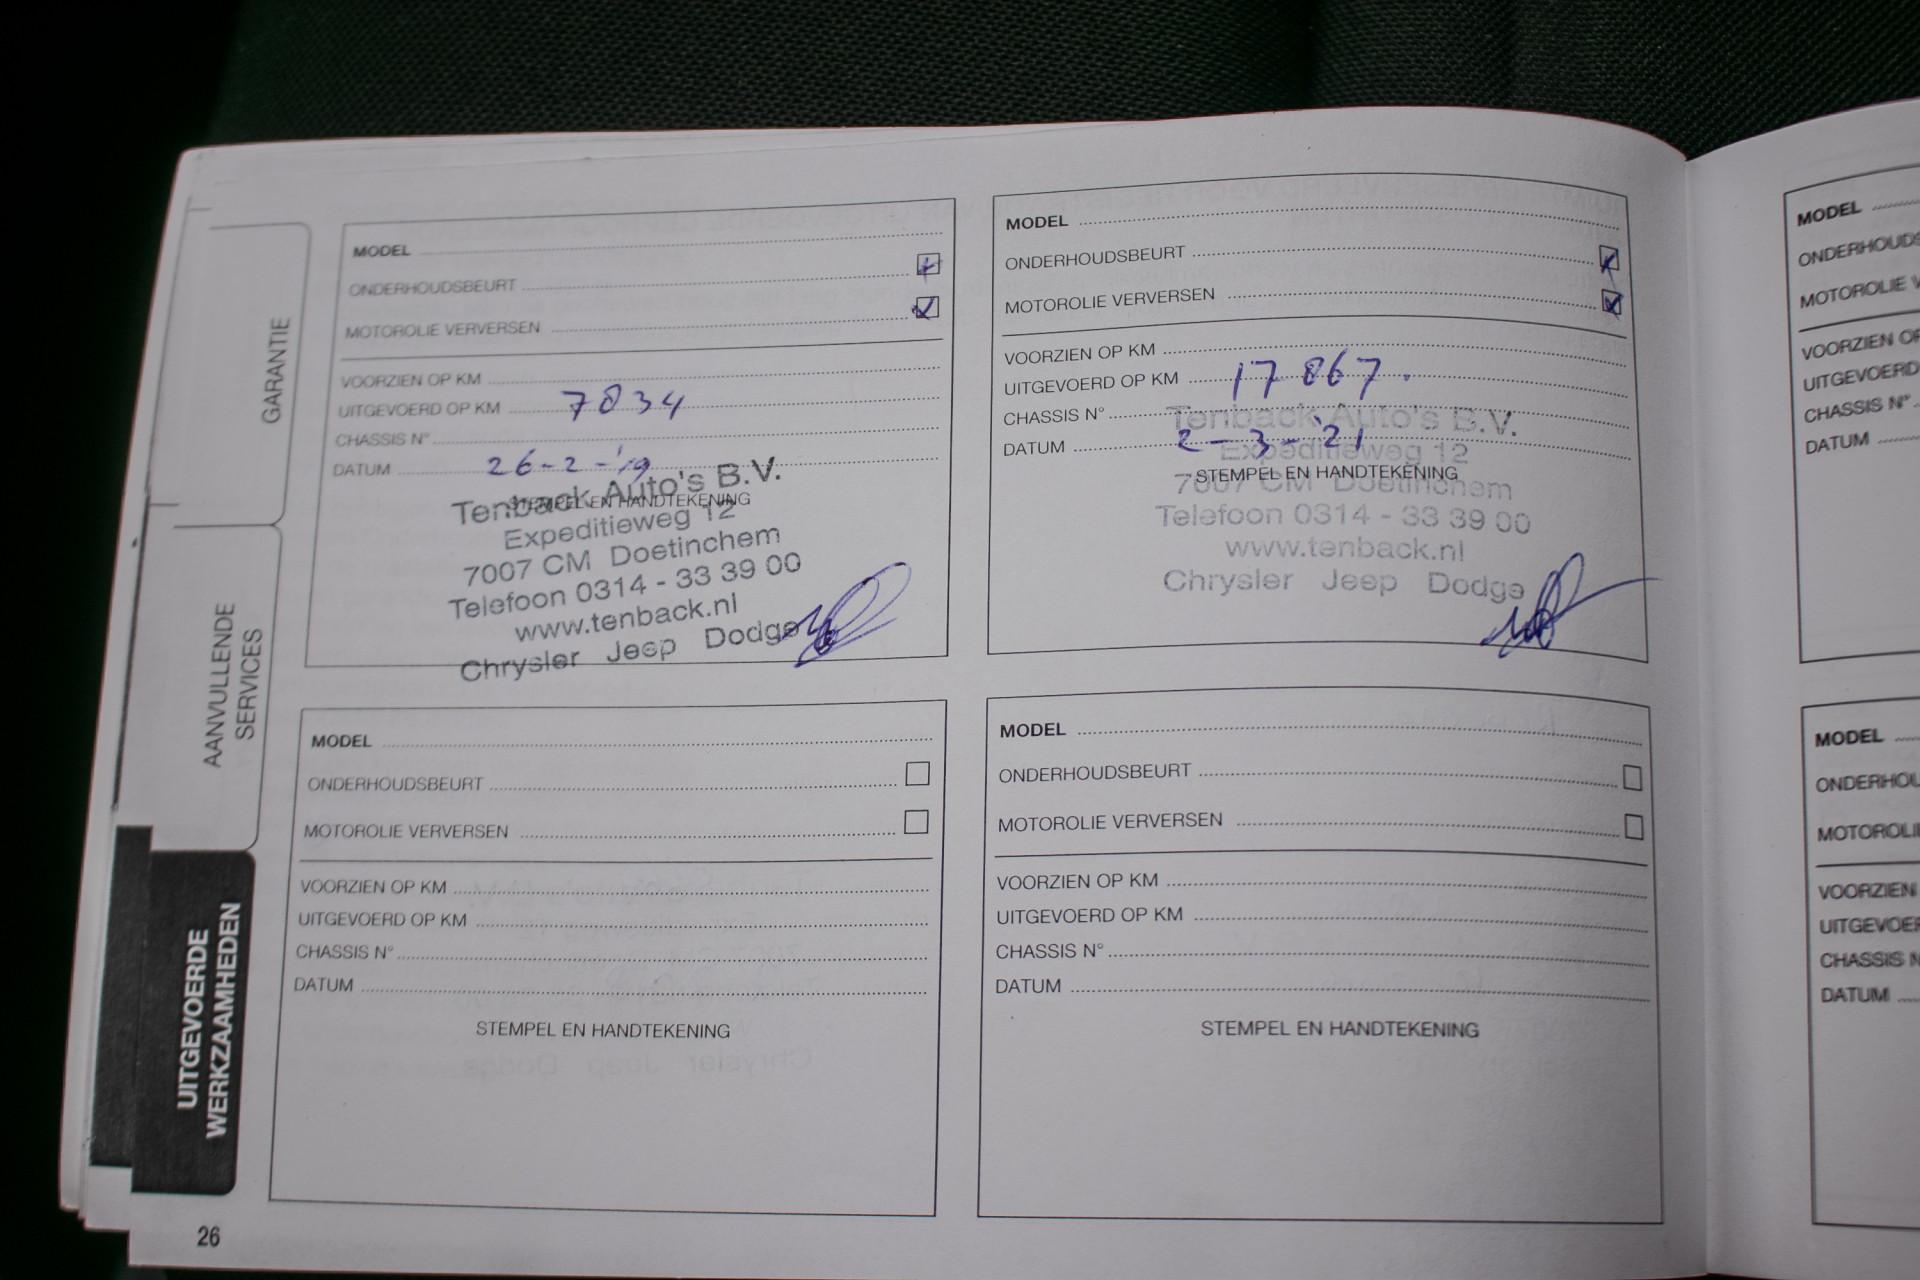 GARANTIE
AANVULLENDE
SERVICES
UITGEVOERDE
WERKZAAMHEDEN
MODEL
ONDERHOUDSBEURT
MOTOROLIE VERVERSEN
VOORZIEN OP KM
UITGEVOERD OP KM 7834
CHASSIS N°
DATUM 26-2-'19
STEMPEL EN HANDTEKENING
Tenback Auto's B.V.
Expeditieweg 12
7007 CM Doetinchem
Telefoon 0314 - 33 39 00
www.tenback.nl
Chrysler Jeep Dodge
MODEL
ONDERHOUDSBEURT
MOTOROLIE VERVERSEN
VOORZIEN OP KM
UITGEVOERD OP KM 17867.
CHASSIS N°
DATUM 2-3-'21
STEMPEL EN HANDTEKENING
Tenback Auto's B.V.
Expeditieweg 12
7007 CM Doetinchem
Telefoon 0314 - 33 39 00
www.tenback.nl
Chrysler Jeep Dodge
MODEL
ONDERHOUDSBEURT
MOTOROLIE VERVERSEN
VOORZIEN OP KM
UITGEVOERD OP KM
CHASSIS N°
DATUM
STEMPEL EN HANDTEKENING
MODEL
ONDERHOUDSBEURT
MOTOROLIE VERVERSEN
VOORZIEN OP KM
UITGEVOERD OP KM
CHASSIS N°
DATUM
STEMPEL EN HANDTEKENING
26
MODEL
MOTOROLIE
VOORZIEN
UITGEVOERD
CHASSIS N°
DATUM
MODEL
VOORZIEN
CHASSIS
DATUM